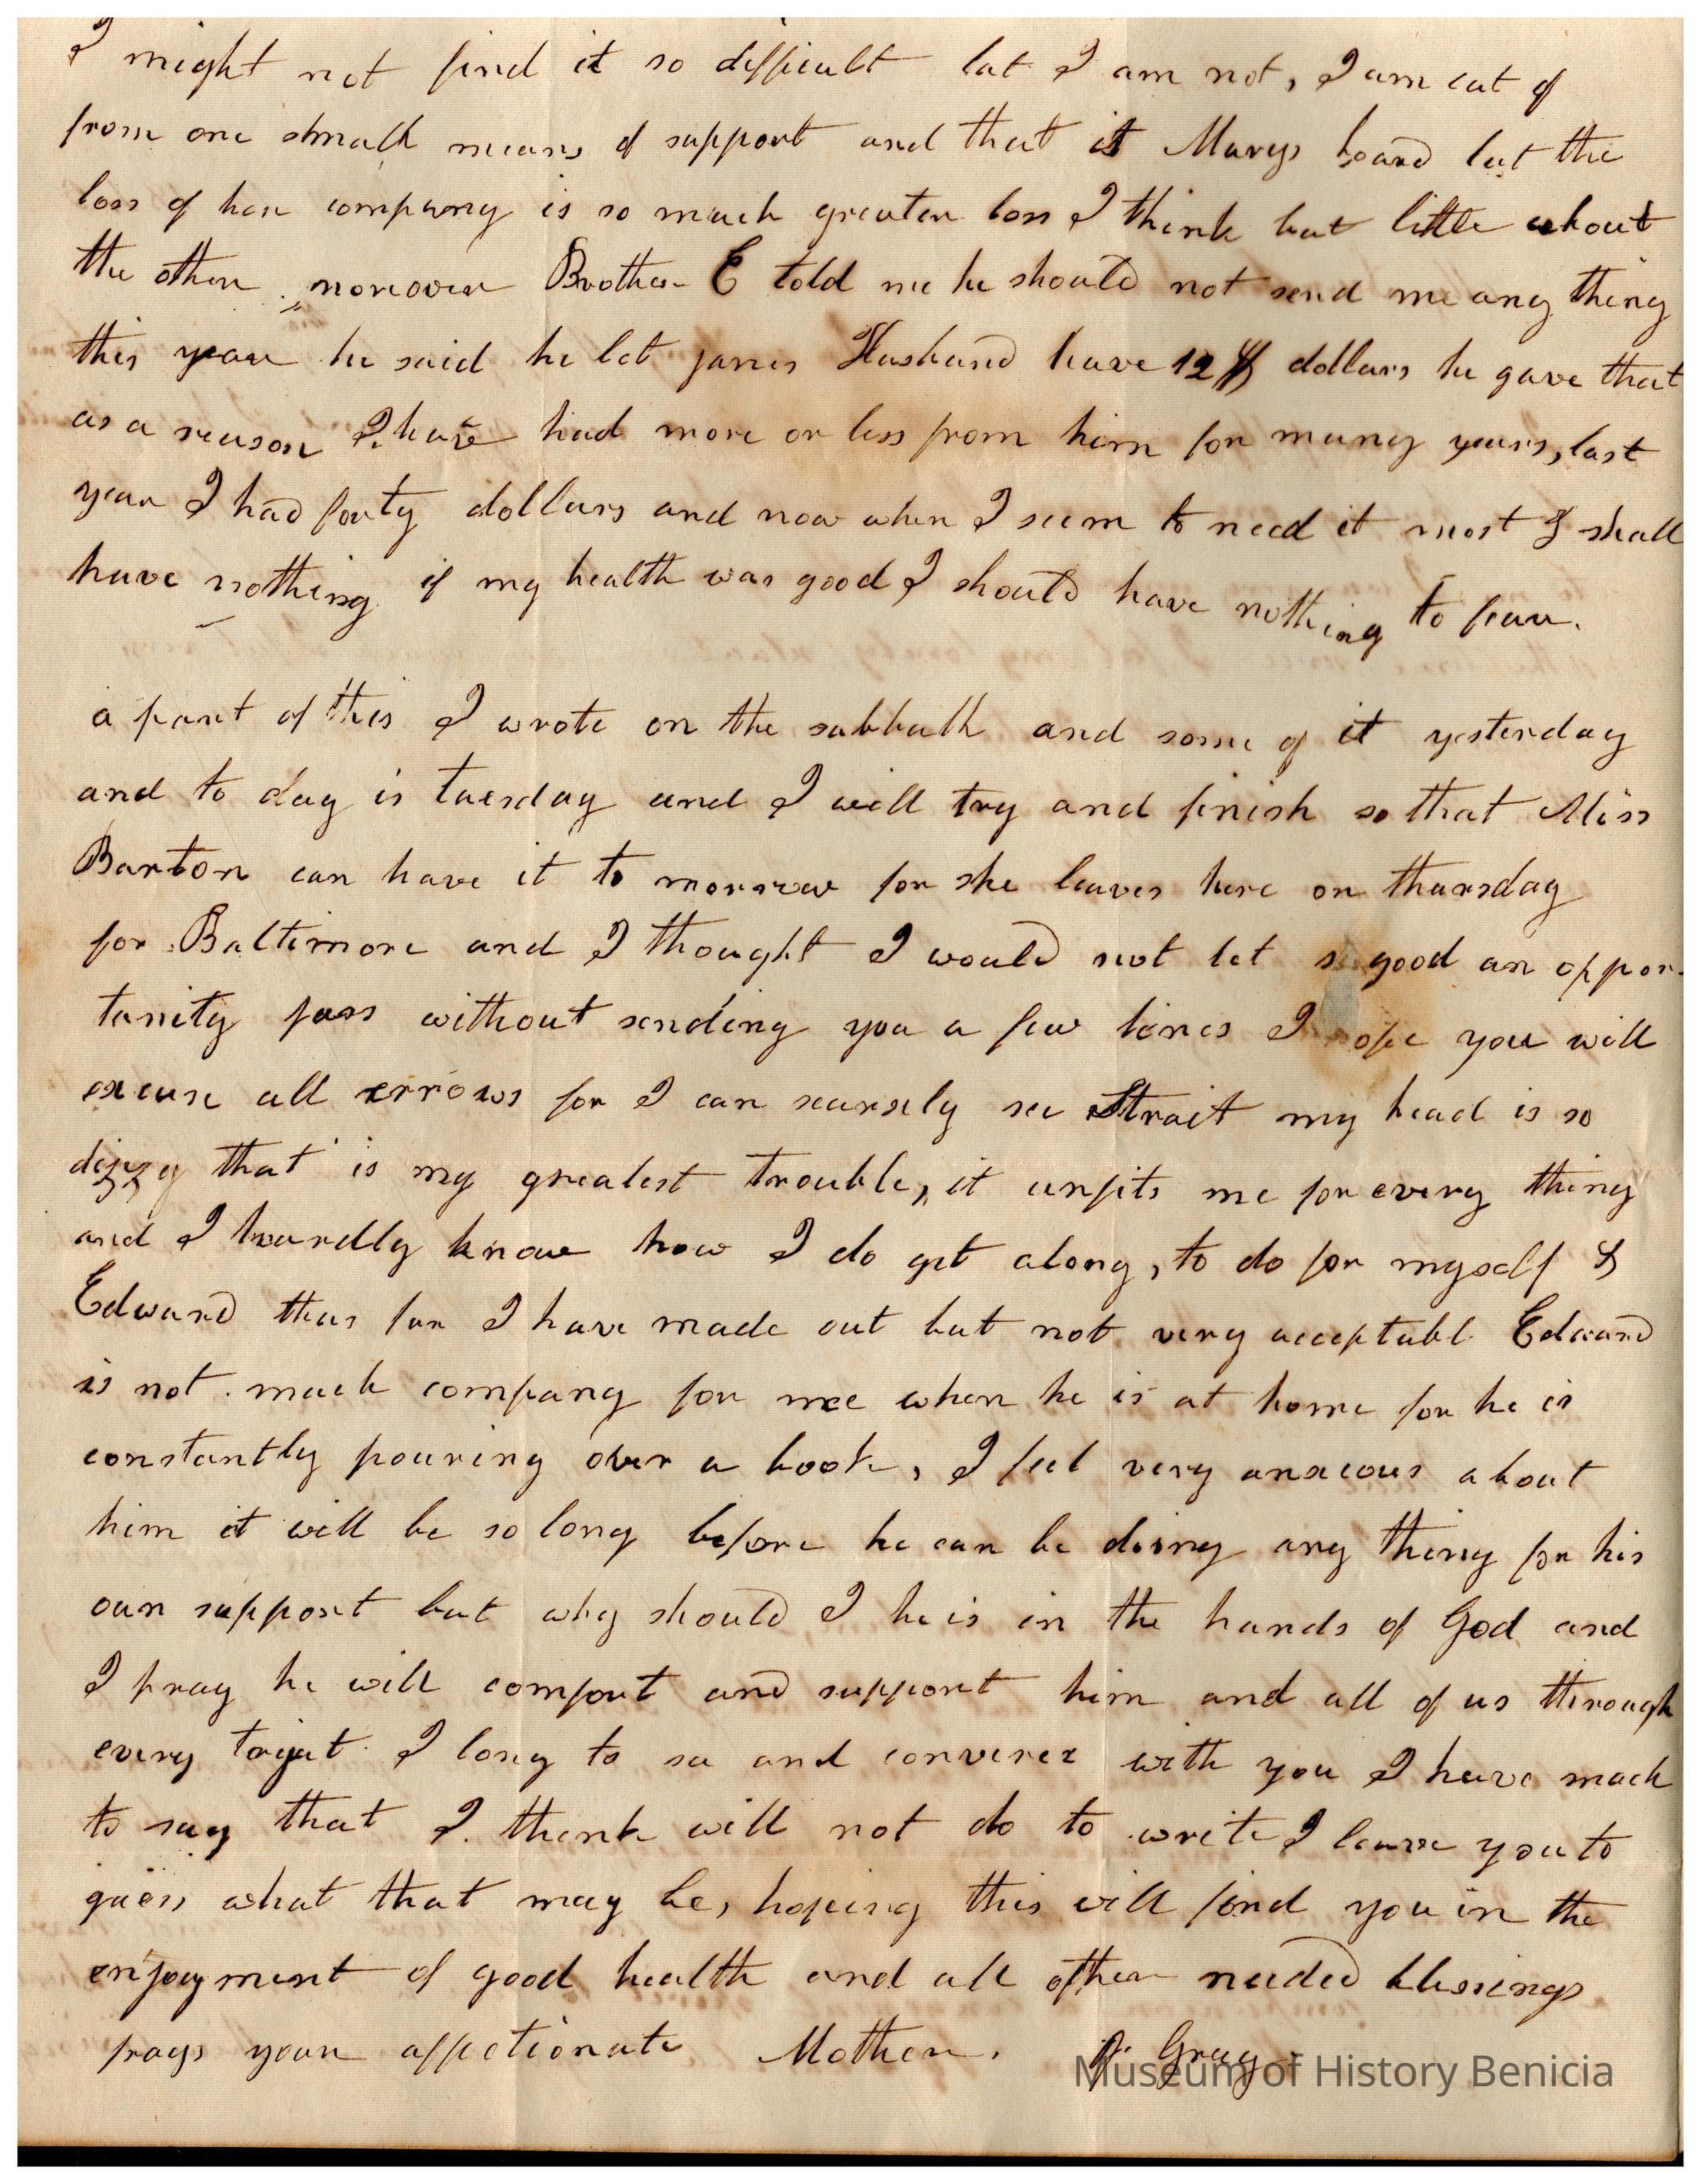 I might not find it so difficult but I am not, I am cut of
from one small means of support and that is Marys board but the
loss of her company is so much greater loss I think but little about
the other moreover Brother E told me he should not send me any thing
this year he said he let janes Husband have dollars he gave that
as a reason I have had more or less from him for many years, last
year I had forty dollars and now when I seem to need it most I shall
have nothing if my health was good I should have nothing to fear.
a part of this I wrote on the sabbath and some of it yesterday
and to day is tuesday and I will try and finish so that Miss
Barton can have it to morrow for she leaves here on thursday
for Baltimore and I thought I would not let so good an oppor-
tunity pass without sending you a few lines I hope you will
excuse all errows for I can scarsely see Strait my head is so
dizzy that is my greatest trouble, it unfits me for every thing
and I hardly know how I do get along, to do for myself &
Edward thus far I have made out but not very acceptabl Edward
is not much company for mee when he is at home for he is
constantly pouring over a book, I feel very anxious about
him it will be so long before he can be doing any thing for his
own support but why should I he is in the hands of God and
I pray he will comfort and support him and all of us through
every I long to see and converse with you I have much
to say that I think will not do to write I leave you to
guess what that may be, hoping this will find you in the
enjoyment of good health and all other needed blessings
prays your affectionate Mother. Gray
Museum of History Benicia